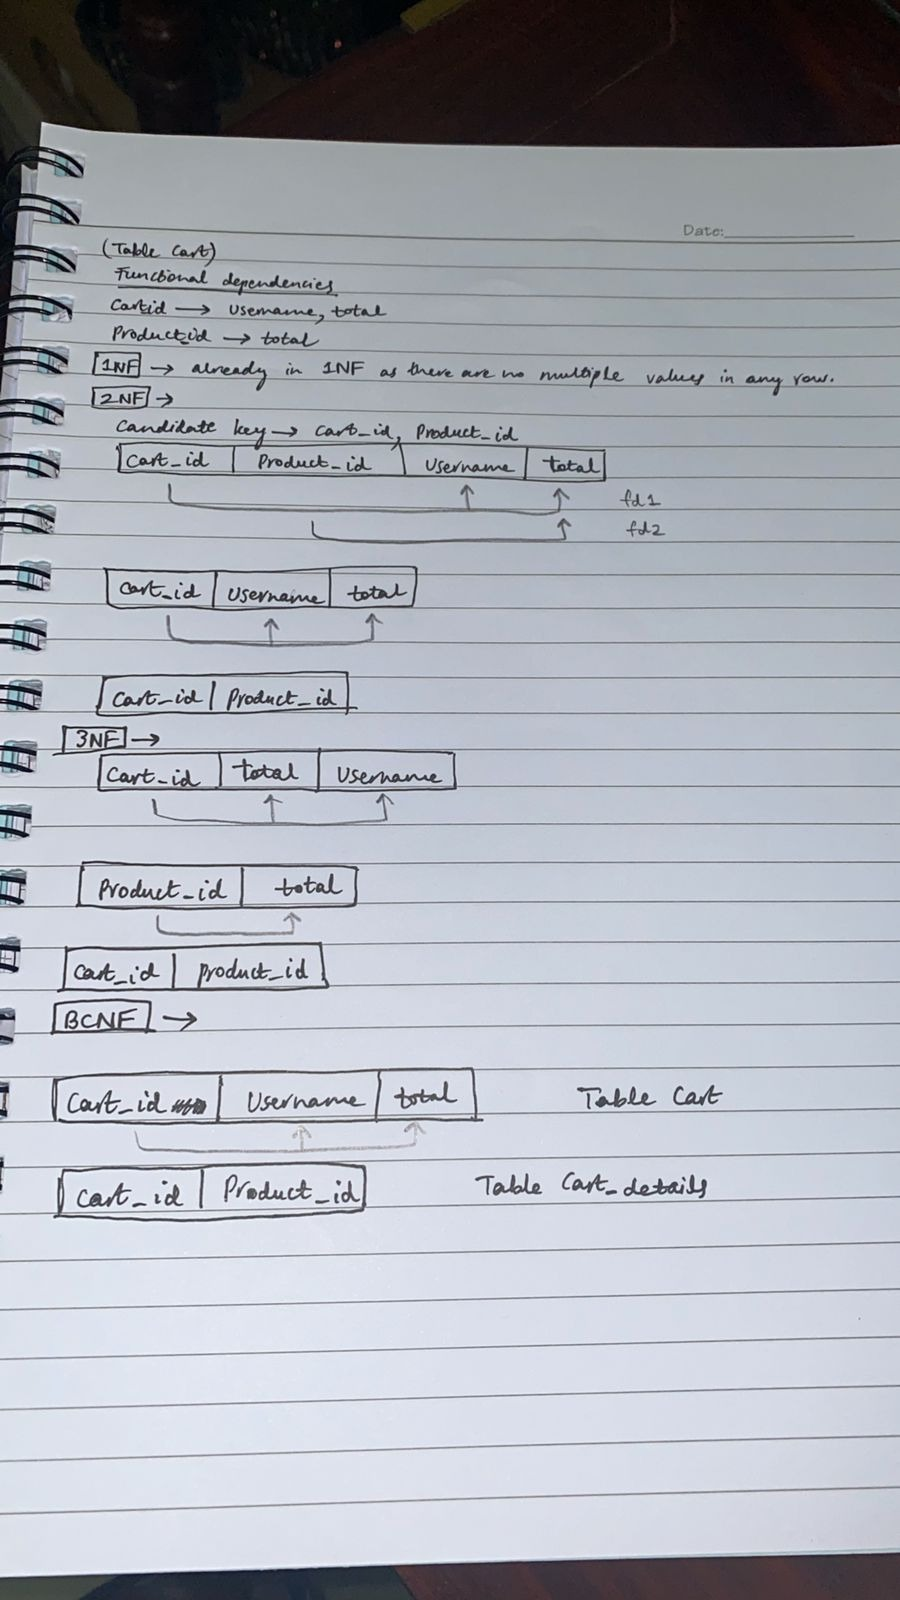 Date:
(Table Cart)
Functional dependencies
Cartid → username, total
Product_id → total
1NF → already in 1NF as there are no multiple values in any row.
2NF →
Candidate key → cart_id, Product_id
Cart_id Product_id Username total
fd1
fd2
Cart_id Username total
Cart_id Product_id
3NF →
Cart_id total Username
Product_id total
Cart_id product_id
BCNF →
Cart_id Username total Table Cart
Cart_id Product_id Table Cart_details